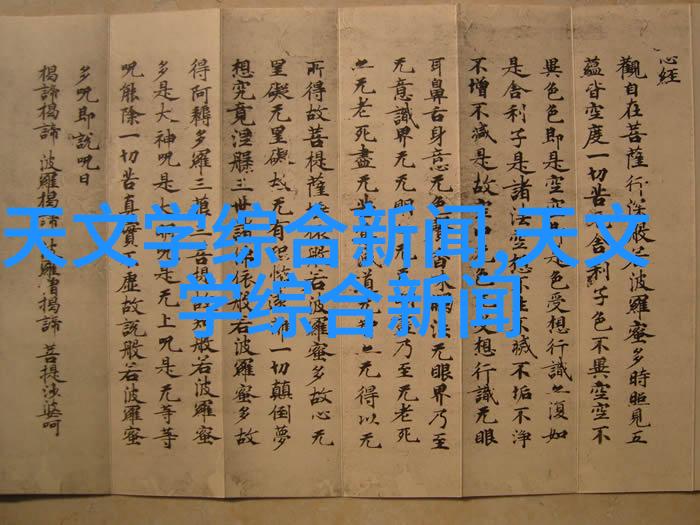 心经
觀自在菩薩行深般若波羅蜜多時照見五
蘊皆空度一切苦舍利子色不異空空不
異色色即是空空即是色受想行識亦復如
是舍利子是諸法空想不生不滅不垢不淨
不增不減是故空色受想行識无眼
耳鼻舌身意无色聲香味无眼界乃至
无意識界无无明无乃至无老死
亦无老死盡无苦道亦无得以无
所得故菩提薩埵依般若波羅蜜多故心无
罣礙无罣礙故无有恐怖遠離一切顛倒夢
想究竟涅槃三世諸依般若波羅蜜多故
得阿耨多羅三藐三菩提故知般若波羅蜜
多是大神呪是大明呪是无上呪是无等等
呪能除一切苦真實不虛故說般若波羅蜜
多呪即說呪曰
揭諦揭諦 波羅揭諦 波羅僧揭諦 菩提沙婆呵
天文学综合新闻,天文
学综合新闻